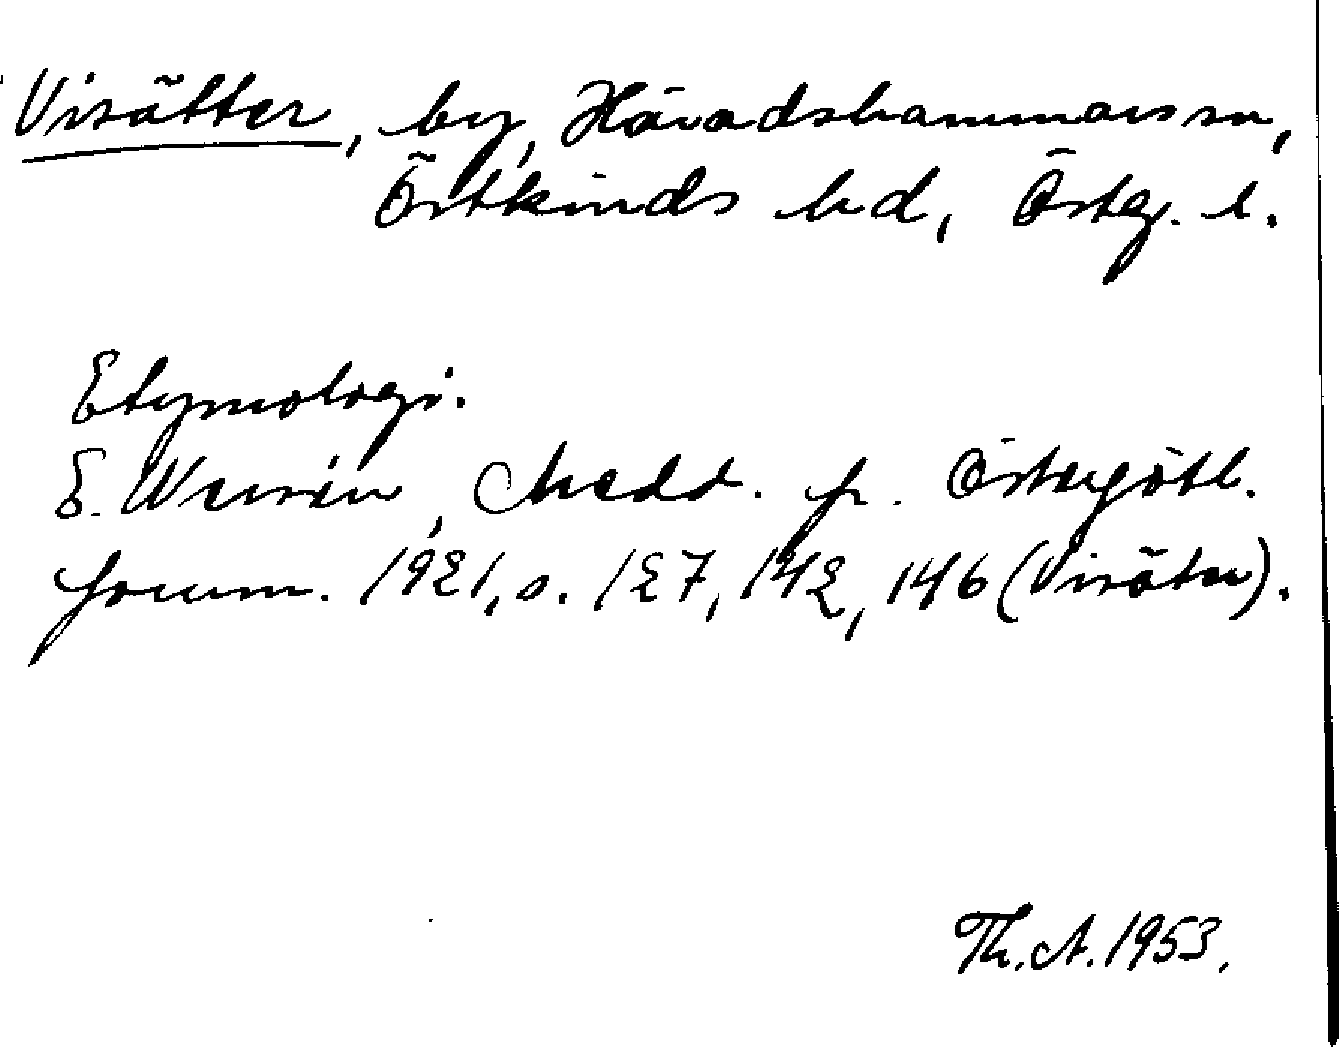 Visätter, by, Häradshammars sn,
Östkinds hd, Österg. l.
Etymologi.
E. Wessén, Medd. fr. Östergötl.
fornm. 1921, s. 127, 142, 146 (Visäter).
Th. A. 1953.